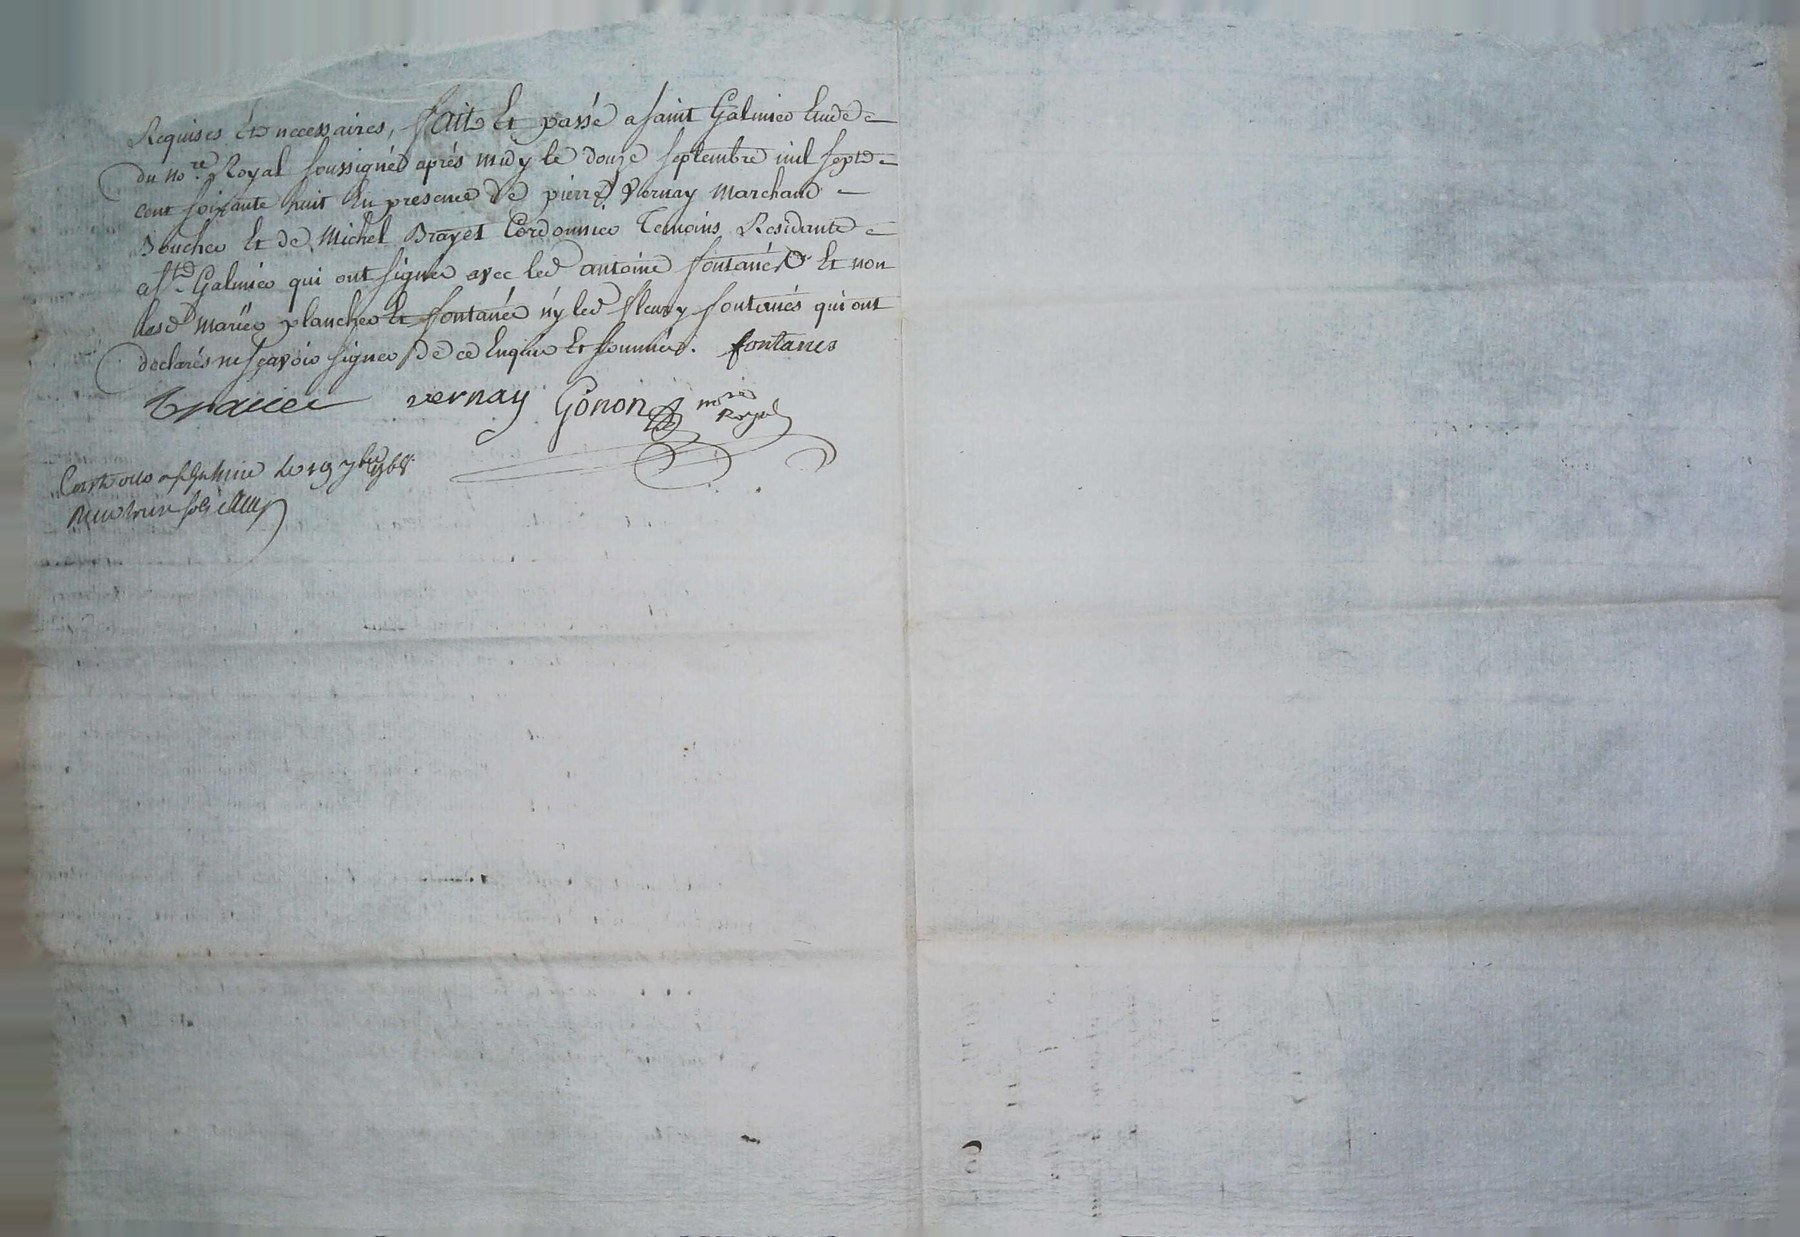 Requises et necessaires, fait Et passé a saint Galmier Etude
du no.re Royal soussigné après midy le douze septembre mil sept
cent soixante huit En presence de pierre Vernay Marchand
Boucher Et de Michel Brayet Cordonnier Temoins Residants
a st Galmier qui ont signer avec led antoine fontanés Et non
lesd mariés plancher Et fontanés n'y led fleury fontanés qui ont
declarés ne sçavoir signer de ce Enquis Et sommés. fontanes
vernay Gonon no.re
Royal
le 19 7bre 1768